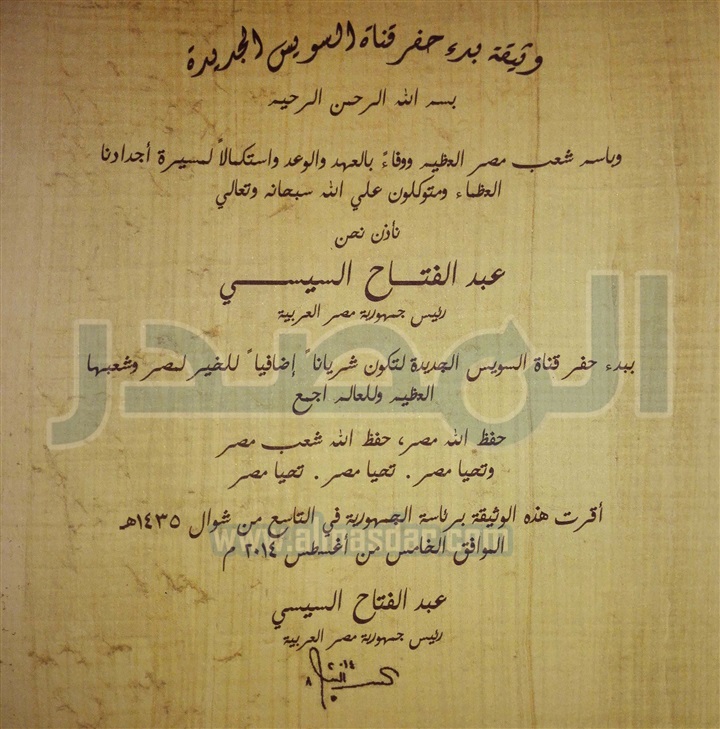 وثيقة بدء حفر قناة السويس الجديدة
بسم الله الرحمن الرحيم
وباسم شعب مصر العظيم ووفاءً بالعهد والوعد واستكمالاً لمسيرة أجدادنا
العظماء ومتوكلون علي الله سبحانه وتعالي
نأذن نحن
عبد الفتـــاح السيســـي
رئيس جمهورية مصر العربية
ببدء حفر قناة السويس الجديدة لتكون شرياناً إضافياً للخير لمصر وشعبها
العظيم وللعالم اجمع
المصدر
حفظ الله مصر، حفظ الله شعب مصر
وتحيا مصر . تحيا مصر . تحيا مصر
أقرت هذه الوثيقة برئاسة الجمهورية في التاسع من شوال ١٤٣٥هـ
الموافق الخامس من أغسطس ٢٠١٤ م
عبد الفتاح السيسي
رئيس جمهورية مصر العربية
٢٠١٤
٨